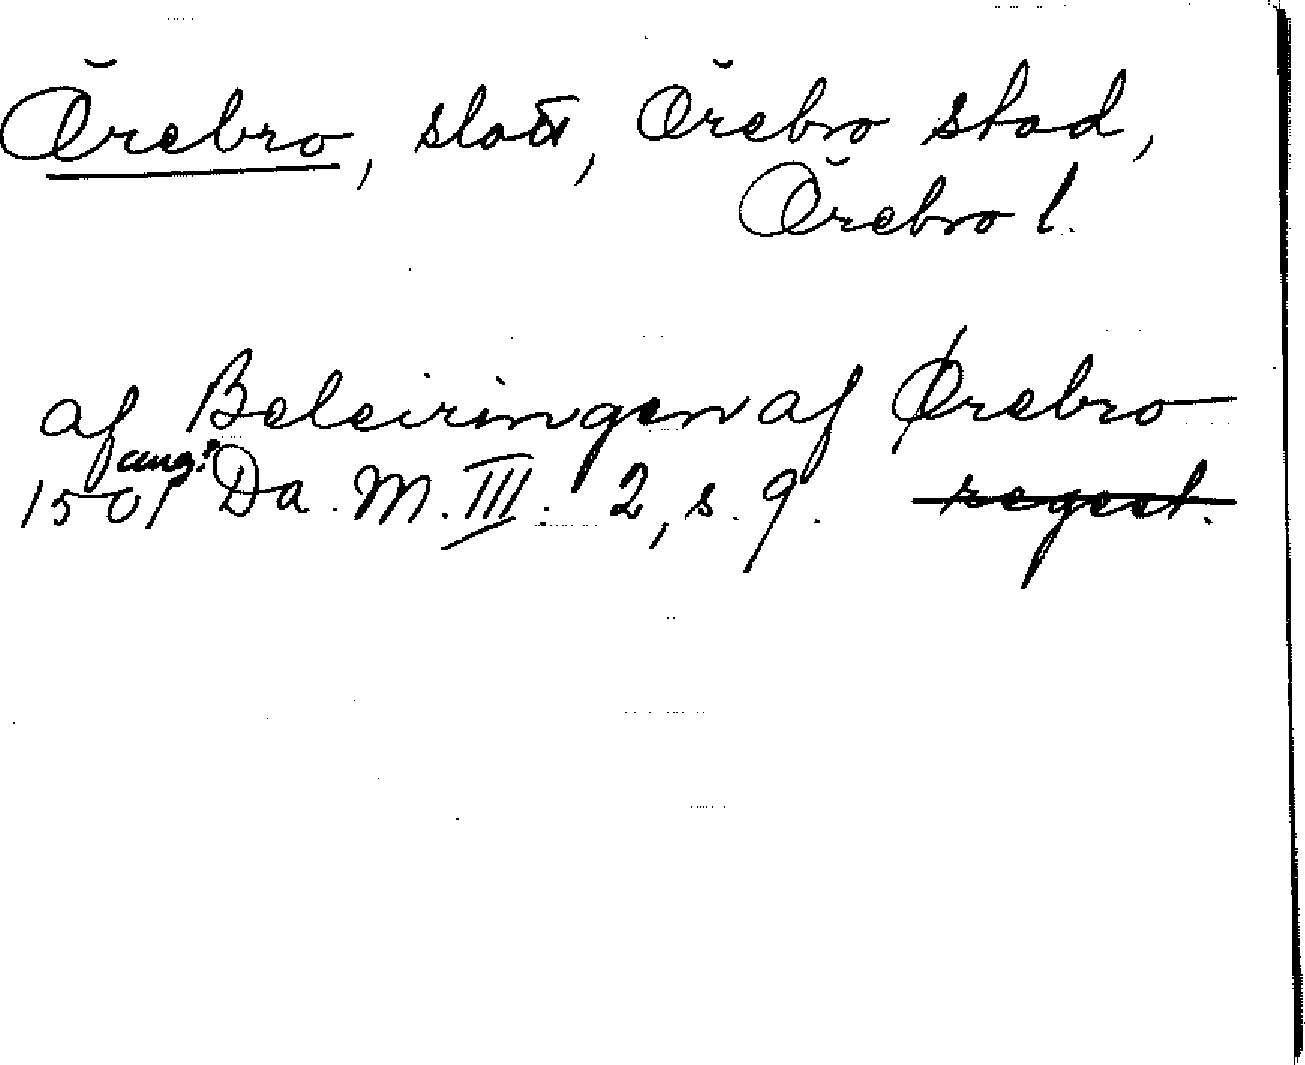 Örebro, slott, Örebro stad,
Örebro l.
af Beleiringen af Ørebro
aug.?
1501 Da. M. III. 2, s. 9. regest.